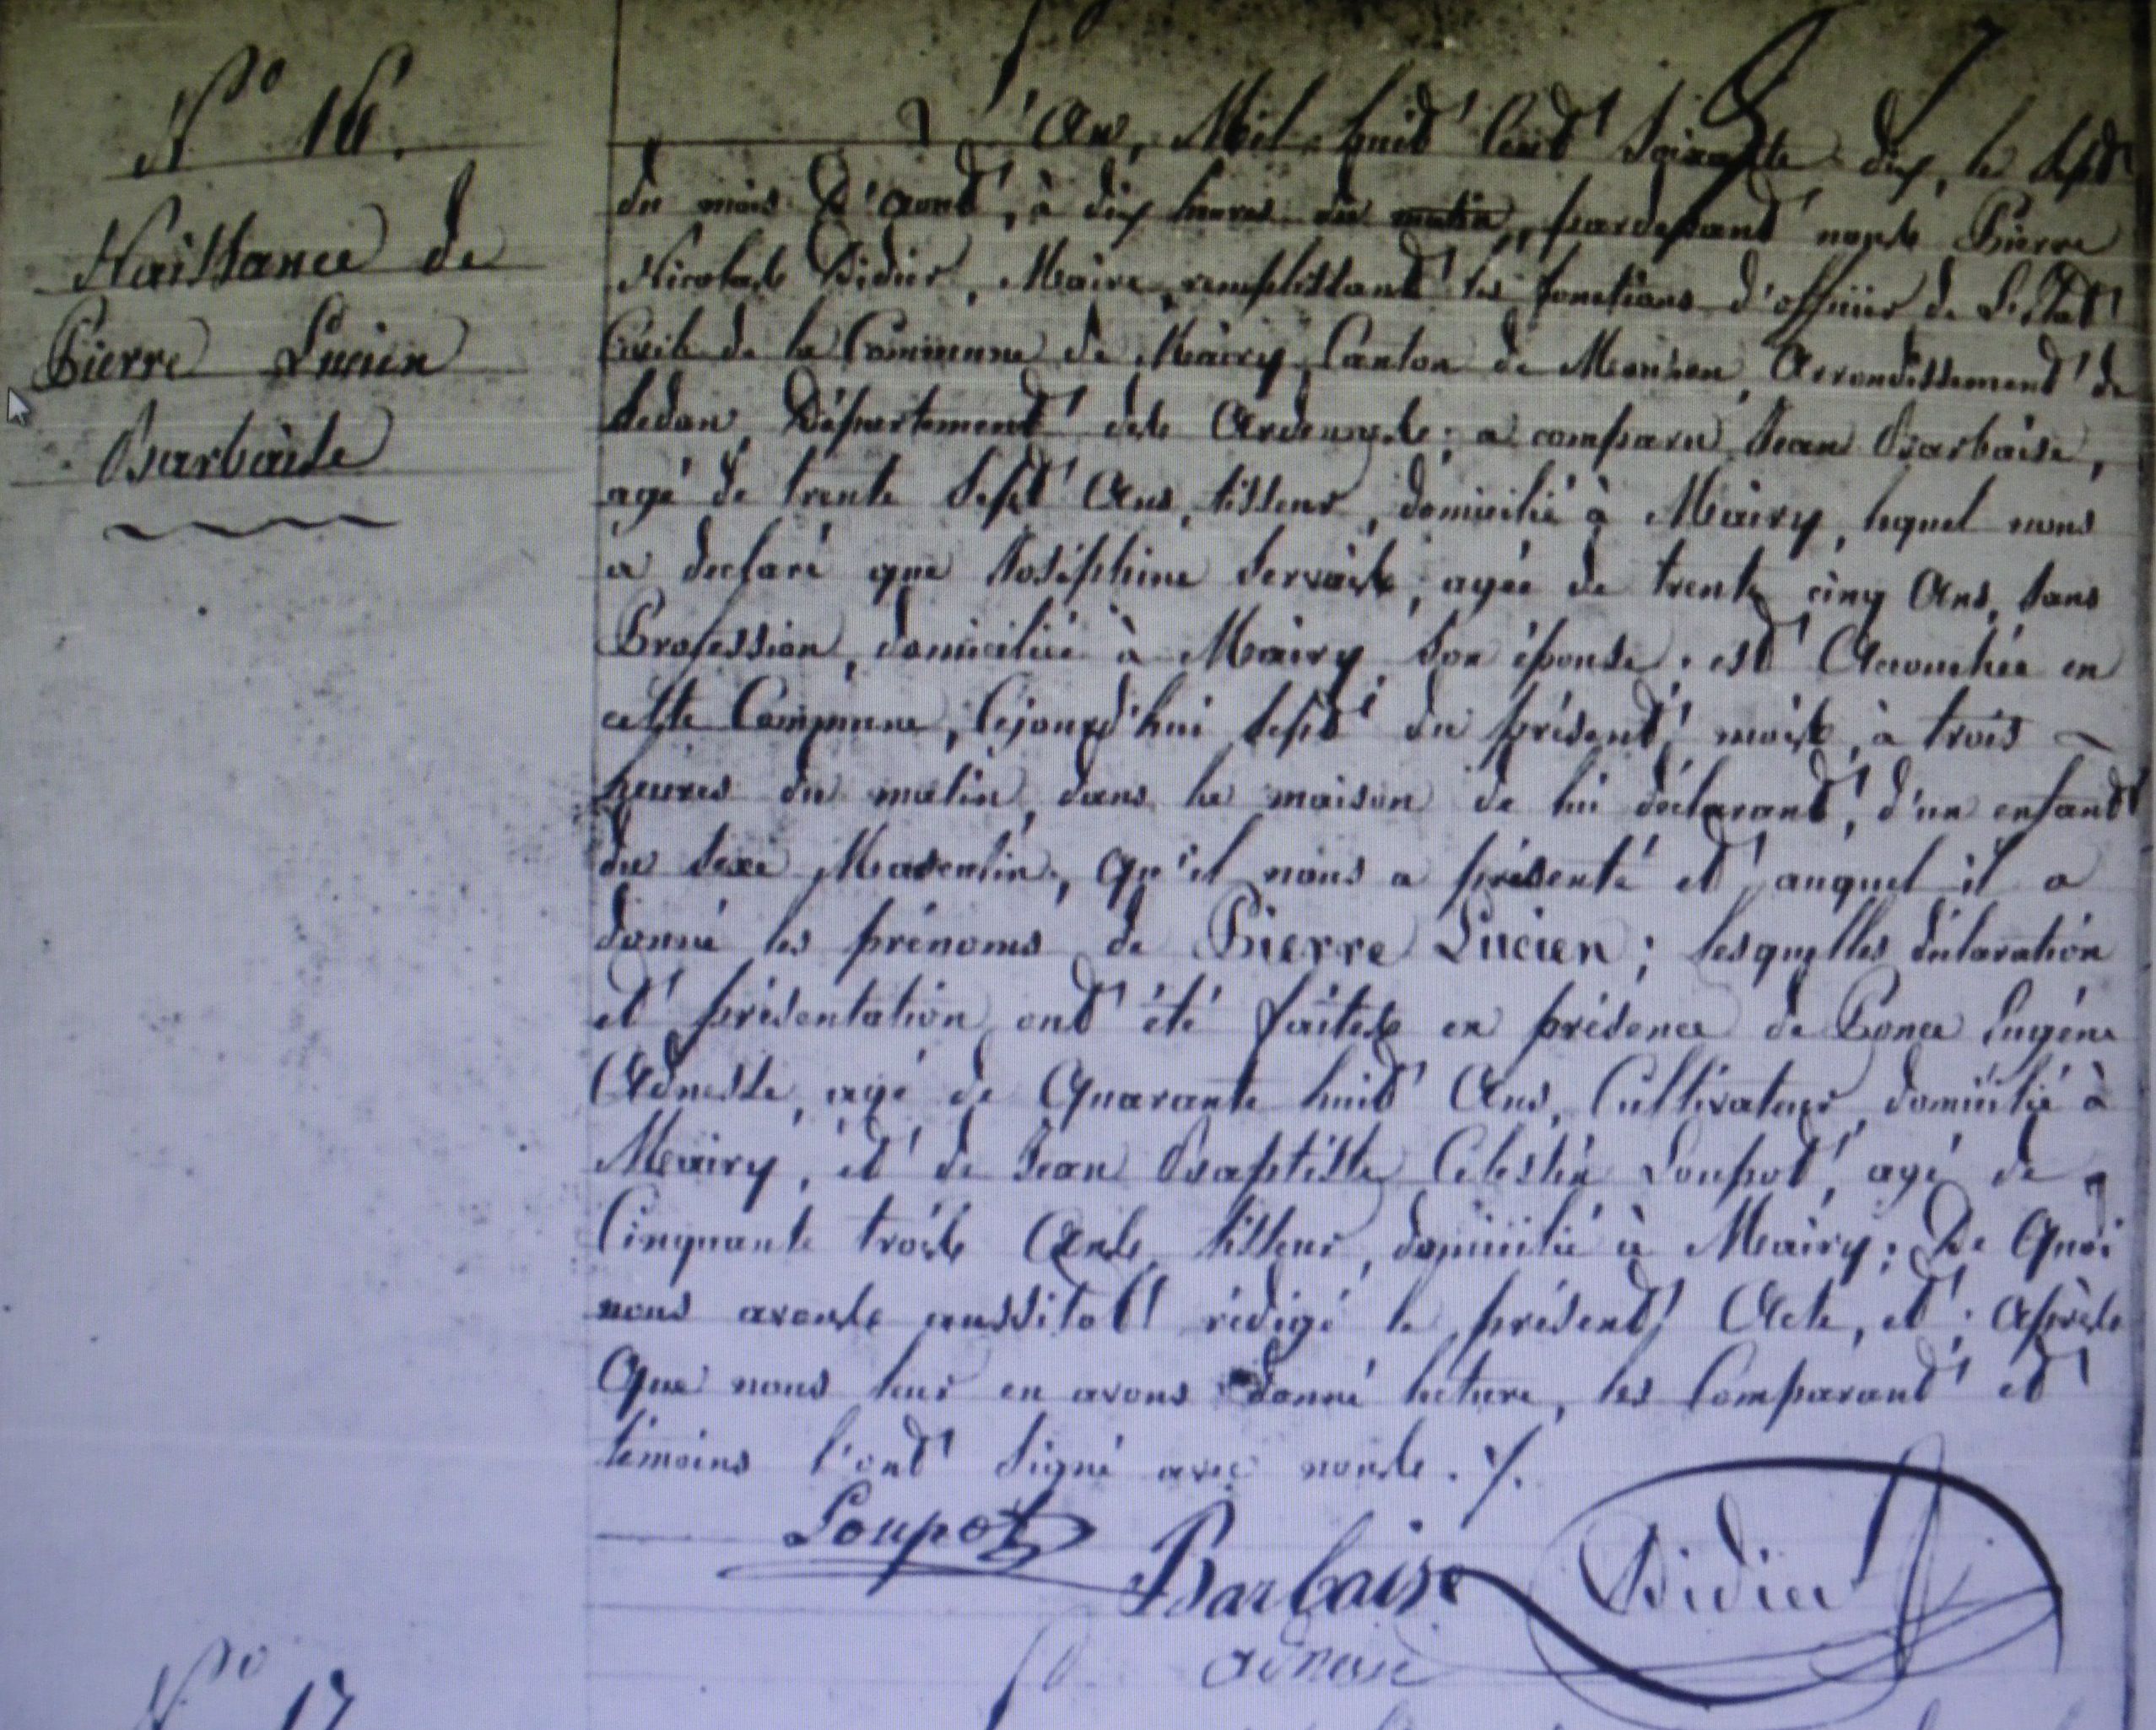 N° 16.
Naissance de
Pierre Lucien
Barbaise
L'An, Mil huit Cent Soixante dix, le Sept
du mois d'Aout, à dix heures du matin, pardevant nous Pierre
Nicolas Didier, Maire, remplissant les fonctions d'officier de L'état
Civil de la Commune de Mairy, Canton de Mouzon, Arrondissement de
Sedan, Département des Ardennes; a comparu Jean Barbaise,
agé de trente Sept Ans, tisseur, domicilié à Mairy, lequel nous
a declaré que Joséphine Servais, agée de trente cinq Ans, Sans
Profession, domiciliée à Mairy, Son épouse, est Accouchée en
cette Commune, Cejourd'hui Sept du présent mois, à trois
heures du matin, dans la maison de lui déclarant, d'un enfant
du Sexe Masculin, Qu'il nous a présenté et auquel il a
donné les prénoms de Pierre Lucien; lesquelles déclaration
et présentation ont été faites en présence de Ponce Eugène
Adnesse, agé de Quarante huit Ans, Cultivateur, domicilié à
Mairy, et de Jean Baptiste Célestin Loupot, agé de
Cinquante trois Ans, tisseur, domicilié à Mairy; De Quoi
nous avons aussitot rédigé le présent Acte, et, Après
Que nous leur en avons donné lecture, les Comparant et
témoins l'ont Signé avec nous. /.
Loupot
Barbaise
Didier
adnesse
N° 17